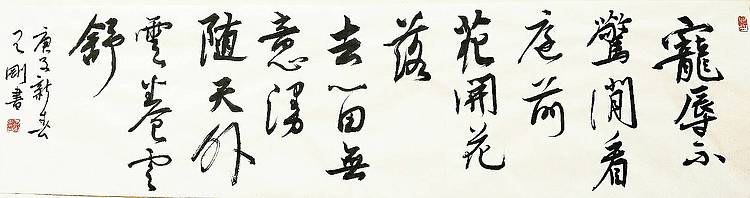 寵辱不
驚閒看
庭前
花開花
落
去留無
意漫
随天外
雲卷雲
舒
庚子新春
剛書